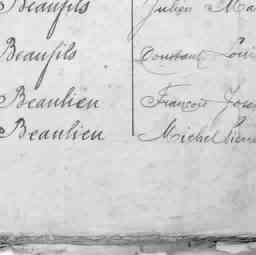 Beaufils Julien Ma
Beaufils Constant Loui
Beaulieu François Jose
Beaulieu Michel Pierre